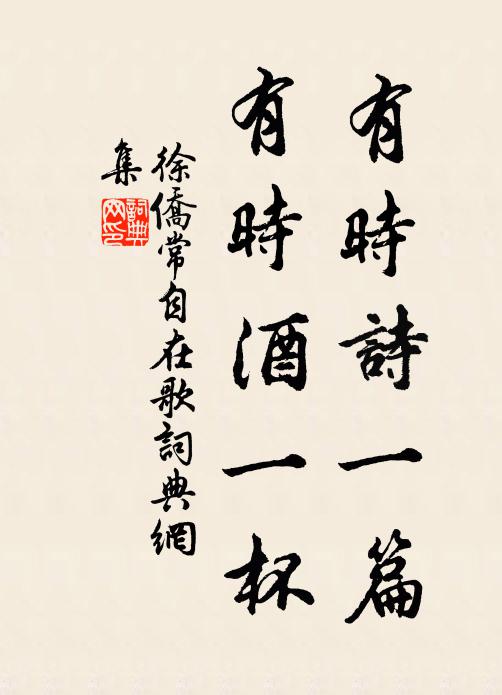 有時詩一篇
有時酒一杯
徐僑常自在歌詞典網
集
詞典網印